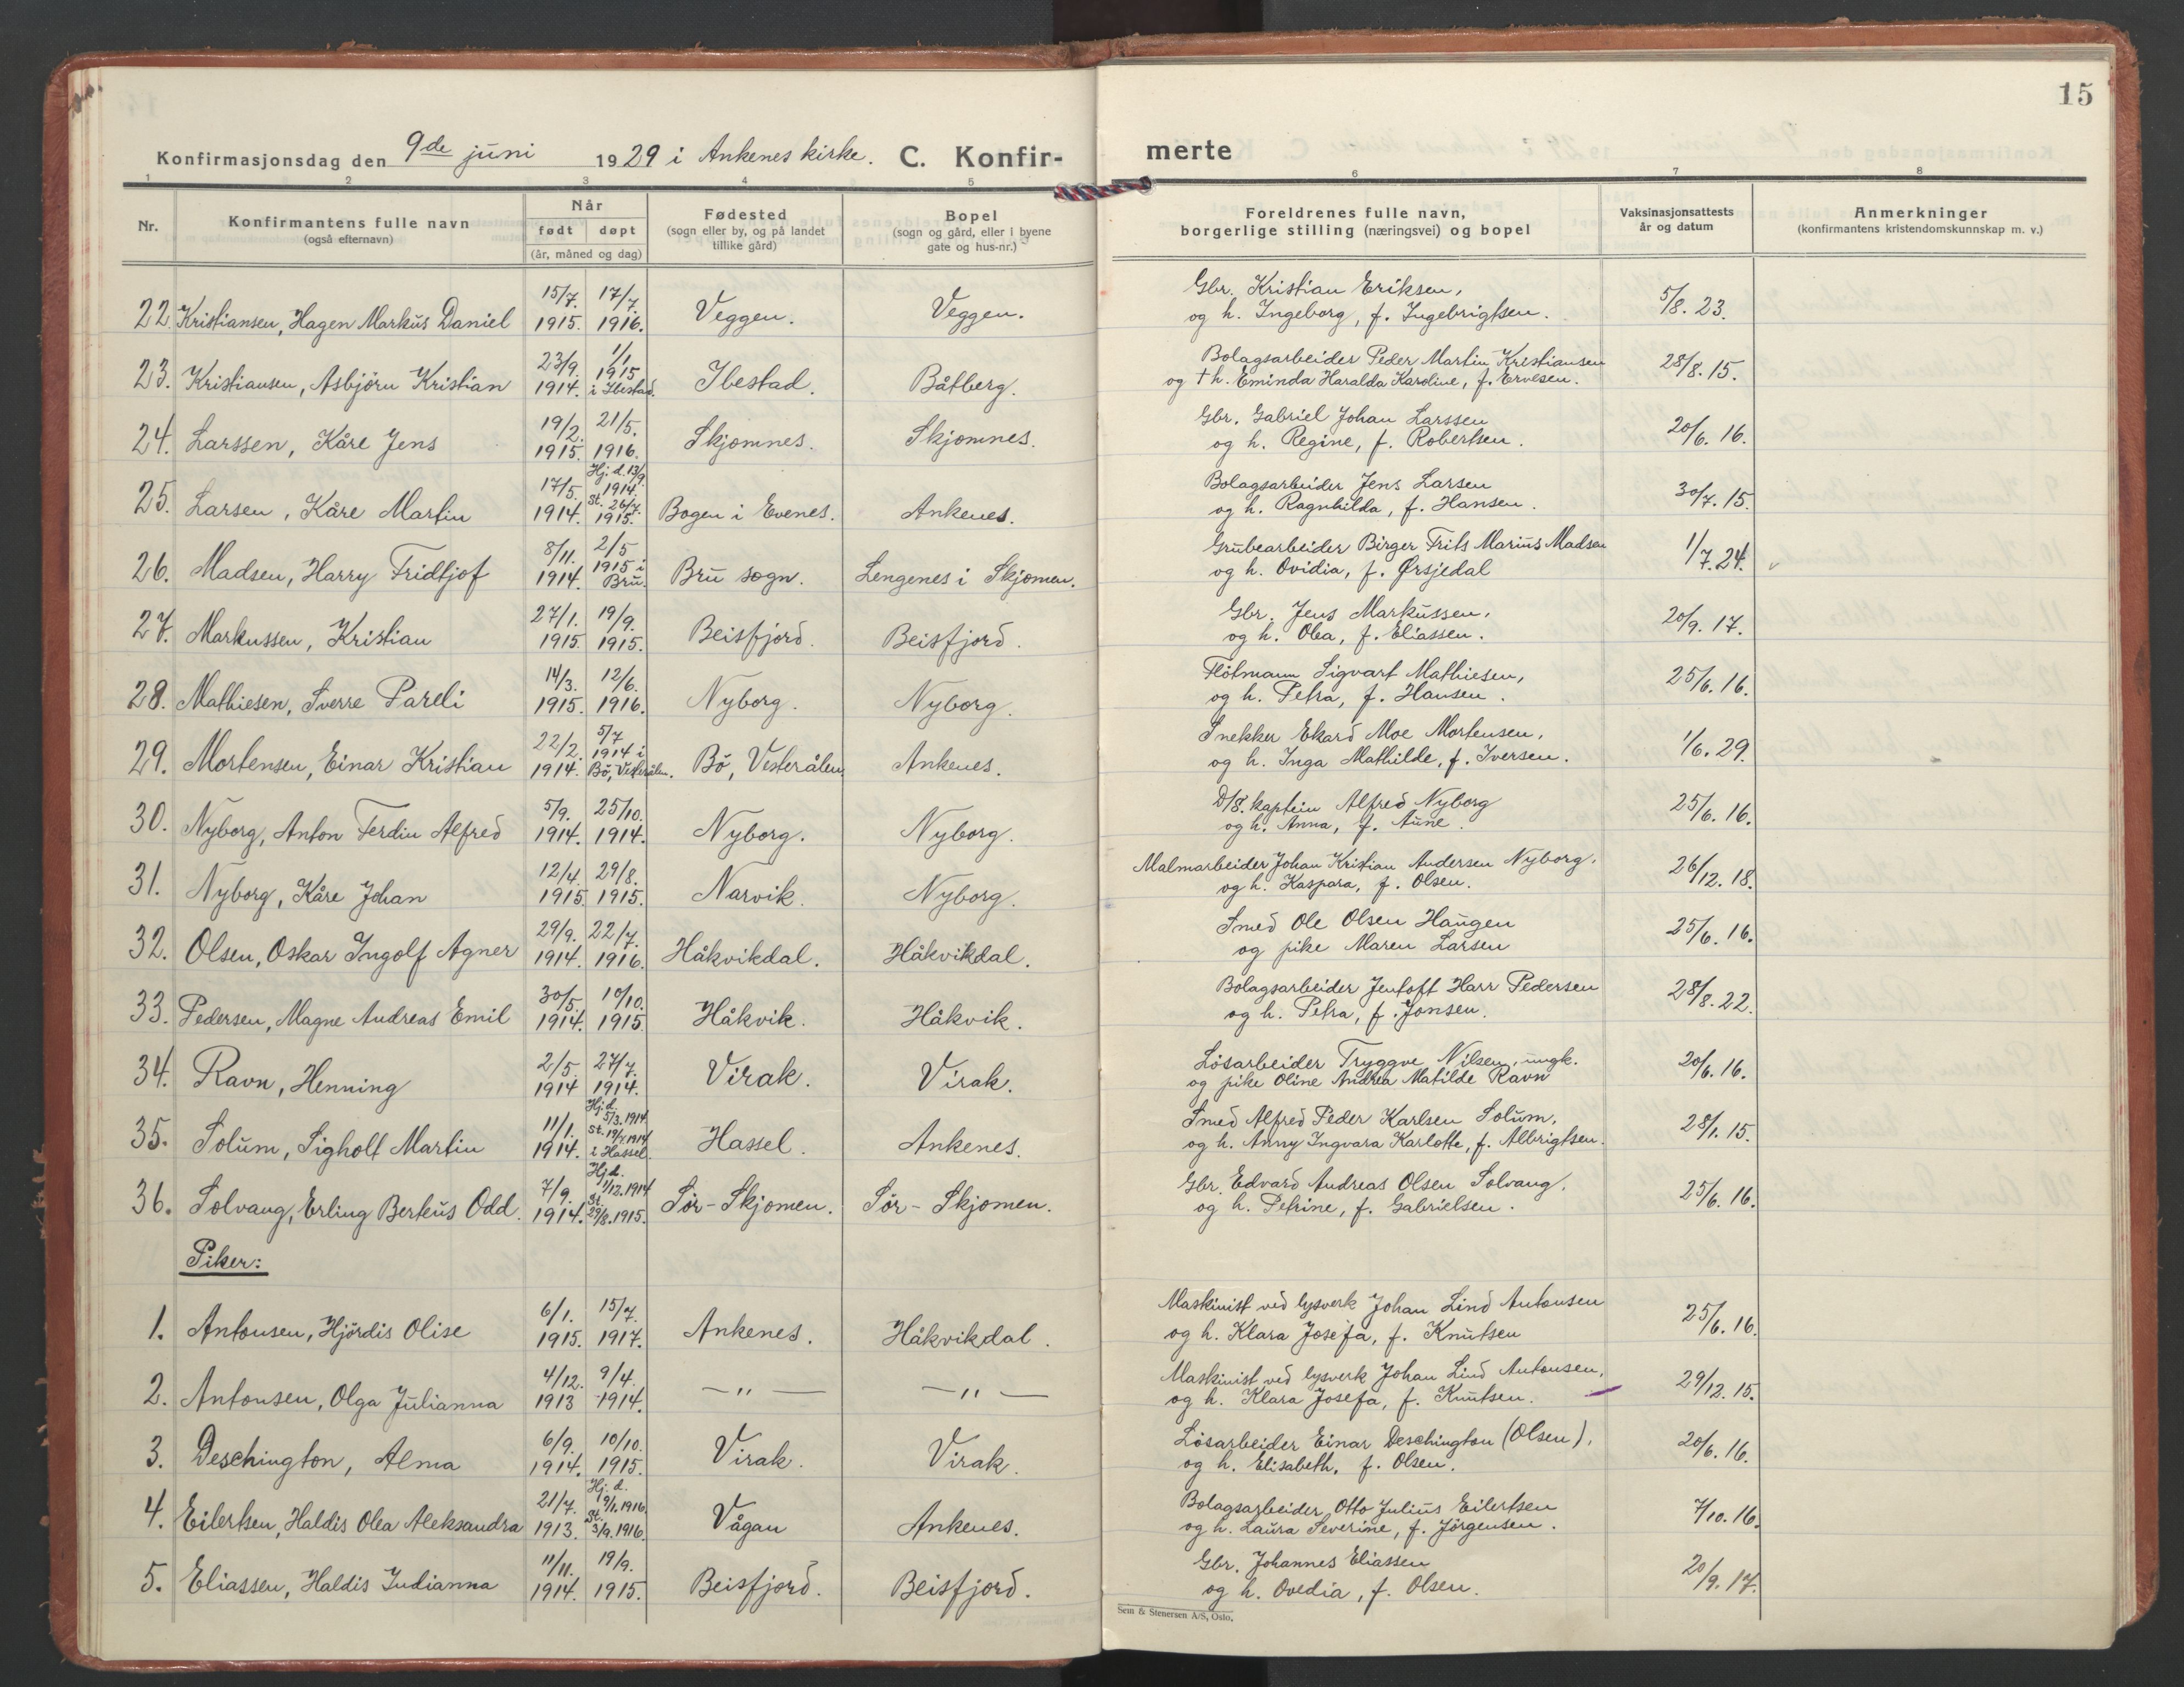 15
Konfirmasjonsdag den 9de juni 1929 i Ankenes kirke. C. Konfir-
merte
1 2 3 4 5
6 7 8
Nr. Konfirmantens fulle navn (også efternavn) Når født døpt (år, måned og dag) Fødested (sogn eller by, og på landet tillike gård) Bopel (sogn og gård, eller i byene gate og hus-nr.)
Foreldrenes fulle navn, borgerlige stilling (næringsvei) og bopel Vaksinasjonsattests år og datum Anmerkninger (konfirmantens kristendomskunnskap m. v.)
22. Kristiansen, Hagen Markus Daniel 15/7. 1915. 17/7. 1916. Veggen. Veggen.
Gbr. Kristian Eriksen,
og h. Ingeborg, f. Ingebrigtsen. 5/8. 23.
23. Kristiansen, Asbjörn Kristian 23/9. 1914. 1/1 1915 i Ibestad. Ibestad. Båtberg.
Bolagsarbeider Peder Martin Kristiansen
og † h. Eminda Haralda Karoline, f. Ervesen. 28/8. 15.
24. Larssen, Kåre Jens 19/2. 1915. 21/5. 1916. Skjomnes. Skjomnes.
Gbr. Gabriel Johan Larssen
og h. Regine, f. Robertsen. 20/6. 16.
25. Larsen, Kåre Martin 17/5. 1914. Hj. d. 13/9. 1914. St. 26/7. 1915. Bogen i Evenes. Ankenes.
Bolagsarbeider Jens Larsen
og h. Ragnhilda, f. Hansen. 30/7. 15.
26. Madsen, Harry Fridtjof 8/11. 1914. 2/5 1915 i Bru. Bru sogn. Lengenes i Skjomen.
Grubearbeider Birger Frits Marius Madsen
og h. Ovidia, f. Ørsjedal 1/7. 24.
27. Markussen, Kristian 27/1. 1915. 19/9. 1915. Beisfjord. Beisfjord.
Gbr. Jens Markussen,
og h. Olea, f. Eliassen. 20/9. 17.
28. Mathiesen, Sverre Pareli 14/3. 1915. 12/6. 1916. Nyborg. Nyborg.
Flötmann Sigvart Mathiesen,
og h. Petra, f. Hansen. 25/6. 16.
29. Mortensen, Einar Kristian 22/2. 1914. 5/7 1914 i Bö, Vesterålen. Bö, Vesterålen Ankenes.
Snekker Ekard Moe Mortensen,
og h. Inga Mathilde, f. Iversen. 1/6. 29.
30. Nyborg, Anton Ferdin Alfred 5/9. 1914. 25/10. 1914. Nyborg. Nyborg.
D/S. kaptein Alfred Nyborg
og h. Anna, f. Aune. 25/6. 16.
31. Nyborg, Kåre Johan 12/4. 1915. 29/8. 1915. Narvik. Nyborg.
Malmarbeider Johan Kristian Andersen Nyborg.
og h. Kaspara, f. Olsen. 26/12. 18.
32. Olsen, Oskar Ingolf Agner 29/9. 1914. 22/7. 1916. Håkvikdal. Håkvikdal.
Smed Ole Olsen Haugen
og pike Maren Larsen 25/6. 16.
33. Pedersen, Magne Andreas Emil 30/5. 1914. 10/10. 1915. Håkvik. Håkvik.
Bolagsarbeider Jentoft Harr Pedersen
og h. Petra, f. Jonsen. 28/8. 22.
34. Ravn, Henning 2/5. 1914 27/7. 1914. Virak. Virak.
Lösarbeider Tryggve Nilsen, ungk.
og pike Oline Andrea Matilde Ravn 20/6. 16.
35. Solum, Sigholt Martin 11/1. 1914. Hj. d. 5/3. 1914 St. 19/7. 1914 i Hassel. Hassel. Ankenes.
Smed Alfred Peder Karlsen Solum,
og h. Anny Ingvara Karlotte, f. Albrigtsen. 28/1. 15.
36. Solvang, Erling Berteus Odd. 7/9. 1914. Hj. d. 1/12. 1914 St 29/8. 1915. Sör-Skjomen. Sör-Skjomen.
Gbr. Edvard Andreas Olsen Solvang,
og h. Petrine, f. Gabrielsen. 25/6. 16.
Piker:
1. Antonsen, Hjördis Olise 6/1. 1915. 15/7. 1917. Ankenes. Håkvikdal.
Maskinist ved lysverk Johan Lind Antonsen
og h. Klara Josefa, f. Knutsen 25/6. 16.
2. Antonsen, Olga Julianna 4/12. 1913 9/4. 1914. — " — — " —
Maskinist ved lysverk Johan Lind Antonsen,
og h. Klara Josefa, f. Knutsen. 29/12. 15.
3. Deschington, Alma 6/9. 1914. 10/10. 1915. Virak. Virak.
Lösarbeider Einar Deschington (Olsen),
og h. Elisabeth, f. Olsen. 20/6. 16.
4. Eilertsen, Haldis Olea Aleksandra 21/7. 1913. Hj. d. 19/1. 1916. St. 3/9. 1916. Vågan Ankenes.
Bolagsarbeider Otto Julius Eilertsen
og h. Laura Severine, f. Jörgensen. 7/10. 16.
5. Eliassen, Haldis Indianna 11/11. 1914. 19/9. 1915. Beisfjord. Beisfjord.
Gbr. Johannes Eliassen
og h. Ovedia, f. Olsen. 20/9. 17.
Sem & Stenersen A/S, Oslo.